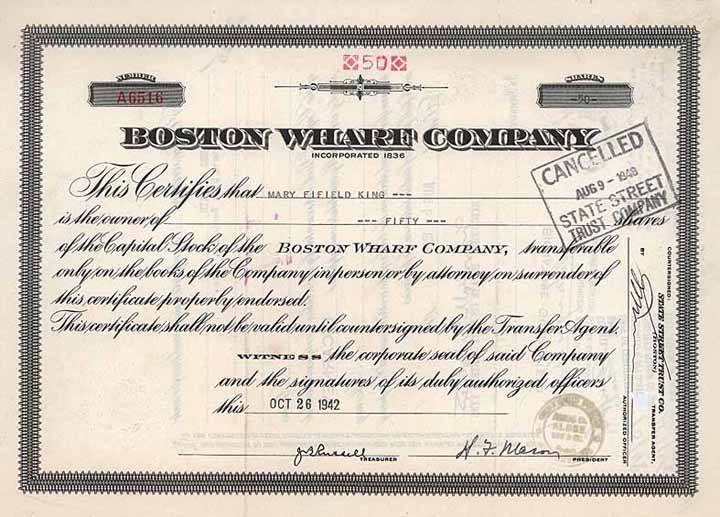 NUMBER
A6516
50
SHARES
-50-
BOSTON WHARF COMPANY
INCORPORATED 1836
CANCELLED
AUG 9 - 1948
STATE STREET
TRUST COMPANY
This Certifies that MARY FIFIELD KING ---
is the owner of --- FIFTY --- shares
of the Capital Stock of the BOSTON WHARF COMPANY, transferable
only on the books of the Company in person or by attorney, on surrender of
this certificate properly endorsed.
This certificate shall not be valid until countersigned by the Transfer Agent.
WITNESS the corporate seal of said Company
and the signatures of its duly authorized officers
this OCT 26 1942
TREASURER
H. F. Mason
PRESIDENT
COUNTERSIGNED:
STATE STREET TRUST CO.
(BOSTON) TRANSFER AGENT.
BY
AUTHORIZED OFFICER